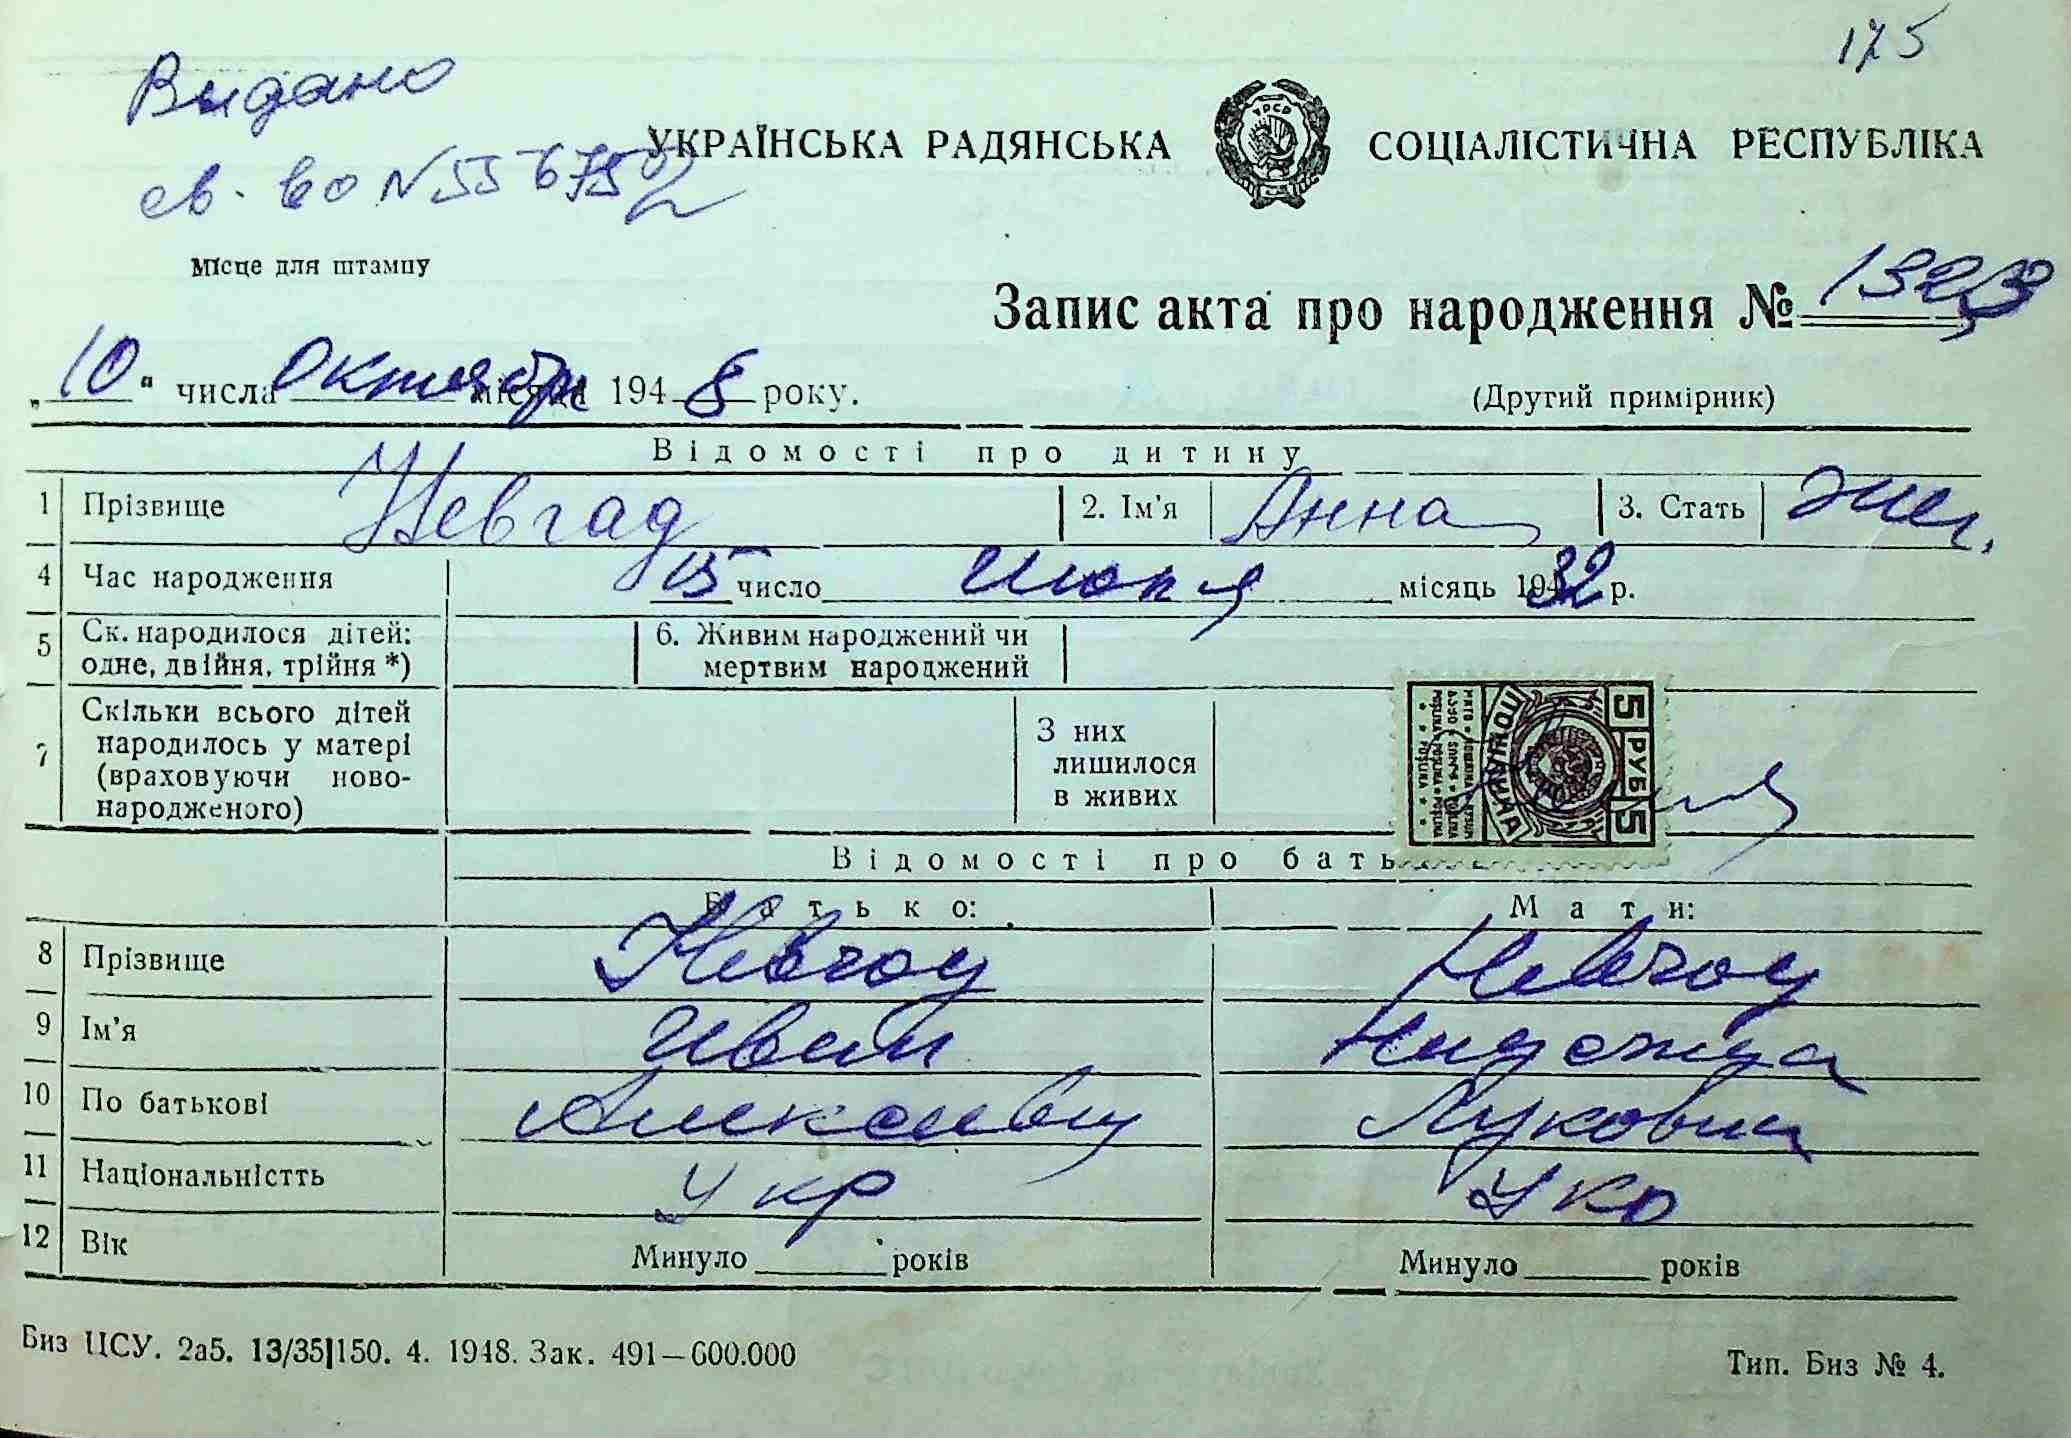 175
Видано
св-во N 556752
УКРАЇНСЬКА РАДЯНСЬКА СОЦІАЛІСТИЧНА РЕСПУБЛІКА
УРСР
Місце для штампу
Запис акта про народження №
„10" числа Октября місяця 1948 року.
(Другий примірник)
Відомості про дитину
1 Прізвище Невгад 2. Ім'я Анна 3. Стать жен.
4 Час народження 15 число июля місяць 1932 р.
5 Ск. народилося дітей: одне, двійня, трійня *) 6. Живим народжений чи мертвим народжений
7 Скільки всього дітей народилось у матері (враховуючи ново-народженого) З них лишилося в живих
5 РУБ 5
Відомості про бать
Батько: Мати:
8 Прізвище Невгад Невгад
9 Ім'я Иван Надежда
10 По батькові Алексеевич Луковна
11 Національністть Укр Укр
12 Вік Минуло ______ років Минуло ______ років
Биз ЦСУ. 2а5. 13/35|150. 4. 1948. Зак. 491—600.000
Тип. Биз № 4.